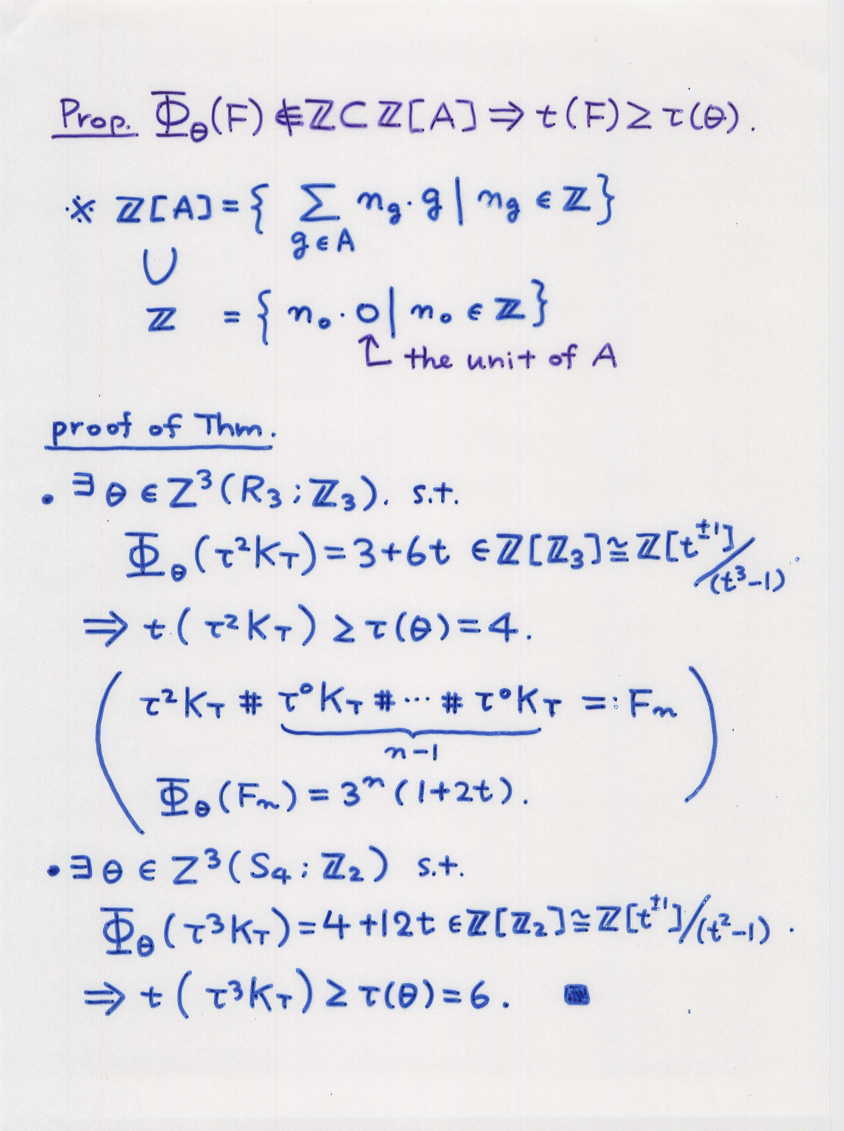 Prop. Φ_θ(F) ∉ ℤ ⊂ ℤ[A] ⇒ t(F) ≥ τ(θ).
※ ℤ[A] = { Σ_{g∈A} n_g · g | n_g ∈ ℤ }
∪
ℤ = { n_0 · 0 | n_0 ∈ ℤ }
the unit of A
proof of Thm.
• ∃ θ ∈ Z³(R₃ ; ℤ₃). s.t.
Φ_θ(τ²K_T) = 3+6t ∈ ℤ[ℤ₃] ≅ ℤ[t^{±1}]/(t³-1).
⇒ t(τ²K_T) ≥ τ(θ) = 4.
( τ²K_T # τ⁰K_T # ⋯ # τ⁰K_T =: F_n
n-1
Φ_θ(F_n) = 3ⁿ(1+2t). )
• ∃ θ ∈ Z³(S₄ ; ℤ₂) s.t.
Φ_θ(τ³K_T) = 4+12t ∈ ℤ[ℤ₂] ≅ ℤ[t^{±1}]/(t²-1).
⇒ t(τ³K_T) ≥ τ(θ) = 6. ■